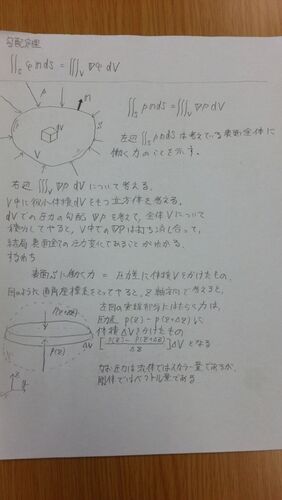 勾配定理
∬_S φ n dS = ∭_V ∇φ dV
P
n
dV
S
V
∬_S p n dS = ∭_V ∇p dV
左辺 ∬_S p n dS は考えている表面全体に
働く力のことを示す。
右辺 ∭_V ∇p dV について考える。
V中に微小体積dVをもつ立方体を考える。
dVでの圧力の勾配 ∇p を考えて、全体Vについて
積分してやると、V中での∇pは打ち消し合って、
結局表面での圧力変化であることがわかる。
すなわち
表面Sに働く力 = 圧力差に体積Vをかけたもの。
図のように直角座標系をとってやると、z軸方向で考えると、
左図の実線部分にはたらく力は、
圧力差 p(z) - p(z+Δz) に
体積ΔVをかけたもの
[p(z) - p(z+Δz) / Δz] ΔV となる
P(z+Δz)
P(z)
ΔV
z
y
x
なお圧力は流体ではスカラー量であるが、
剛体ではベクトル量である